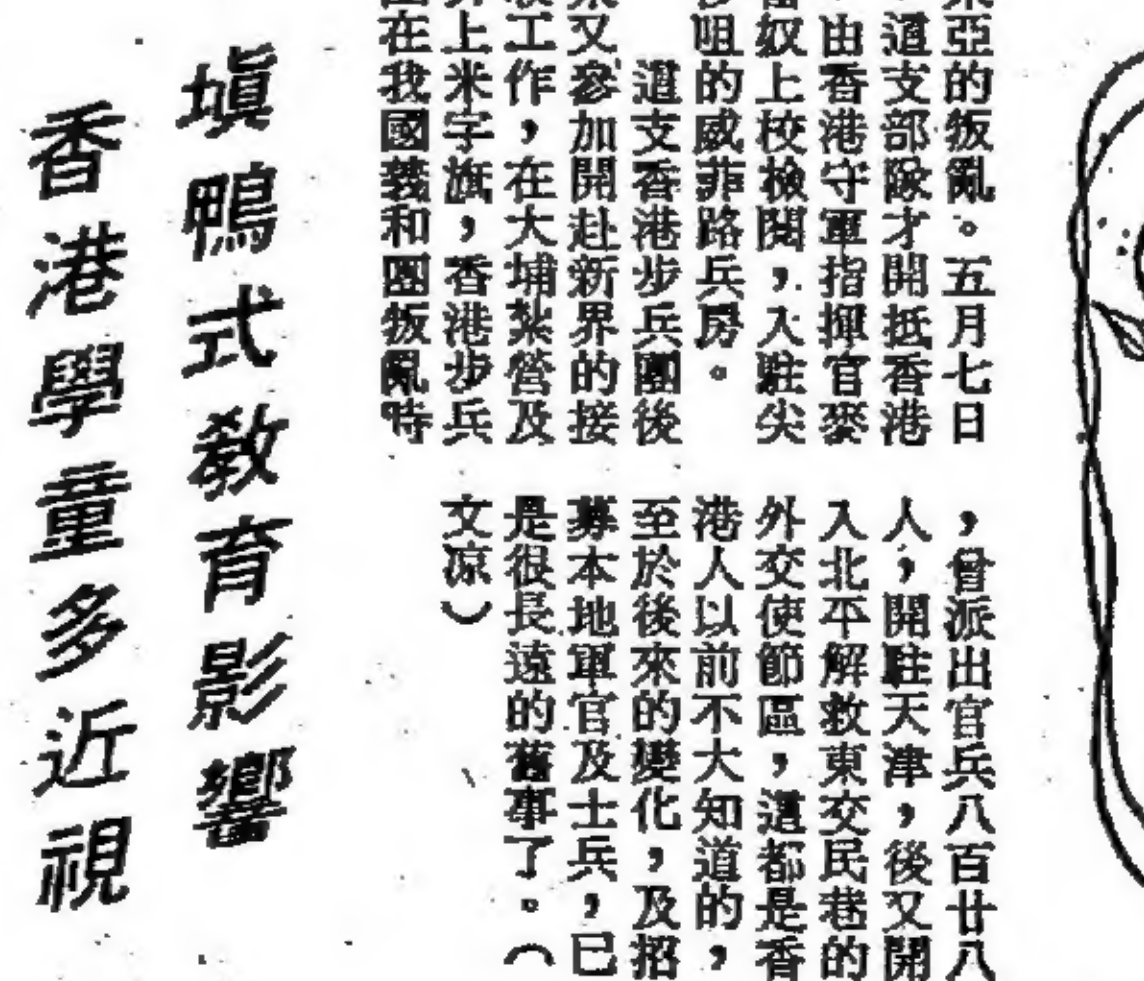 亞的叛亂。五月七日
道支部隊才開抵香港
，由香港守軍指揮官麥
奴上校檢閱，入駐尖
咀的威菲路兵房。
這支香港步兵團後
又參加開赴新界的接
工作，在大埔紮營及
上米字旗，香港步兵
在我國義和團叛亂時
，曾派出官兵八百廿八
人，開駐天津，後又開
入北平解救東交民巷的
外交使節區，這都是香
港人以前不大知道的，
至於後來的變化，及招
募本地軍官及士兵，已
是很長遠的舊事了。（
文凉）
填鴨式教育影響
香港學童多近視